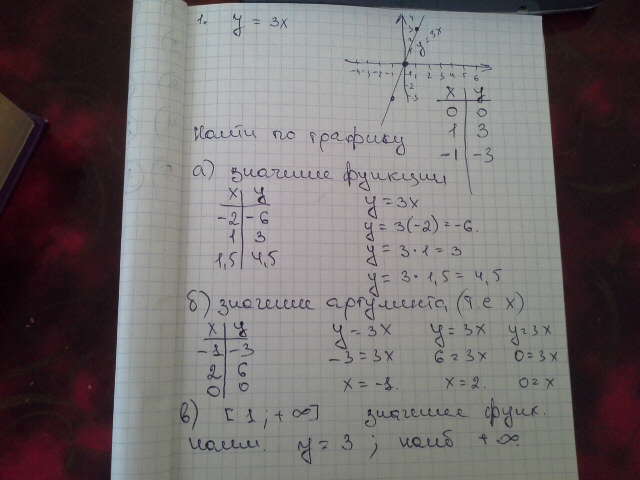 1. y = 3x
y = 3x
-4 -3 -2 -1 1 2 3 4 5 6
x y
0 0
1 3
-1 -3
Найти по графику
а) значение функции
x y
-2 -6
1 3
1,5 4,5
y = 3x
y = 3(-2) = -6.
y = 3·1 = 3
y = 3·1,5 = 4,5
б) значение аргумента (т е x)
x y
-1 -3
2 6
0 0
y = 3x y = 3x y = 3x
-3 = 3x 6 = 3x 0 = 3x
x = -1. x = 2. 0 = x
в) [1 ; +∞] значение функ.
наим. y = 3 ; наиб +∞